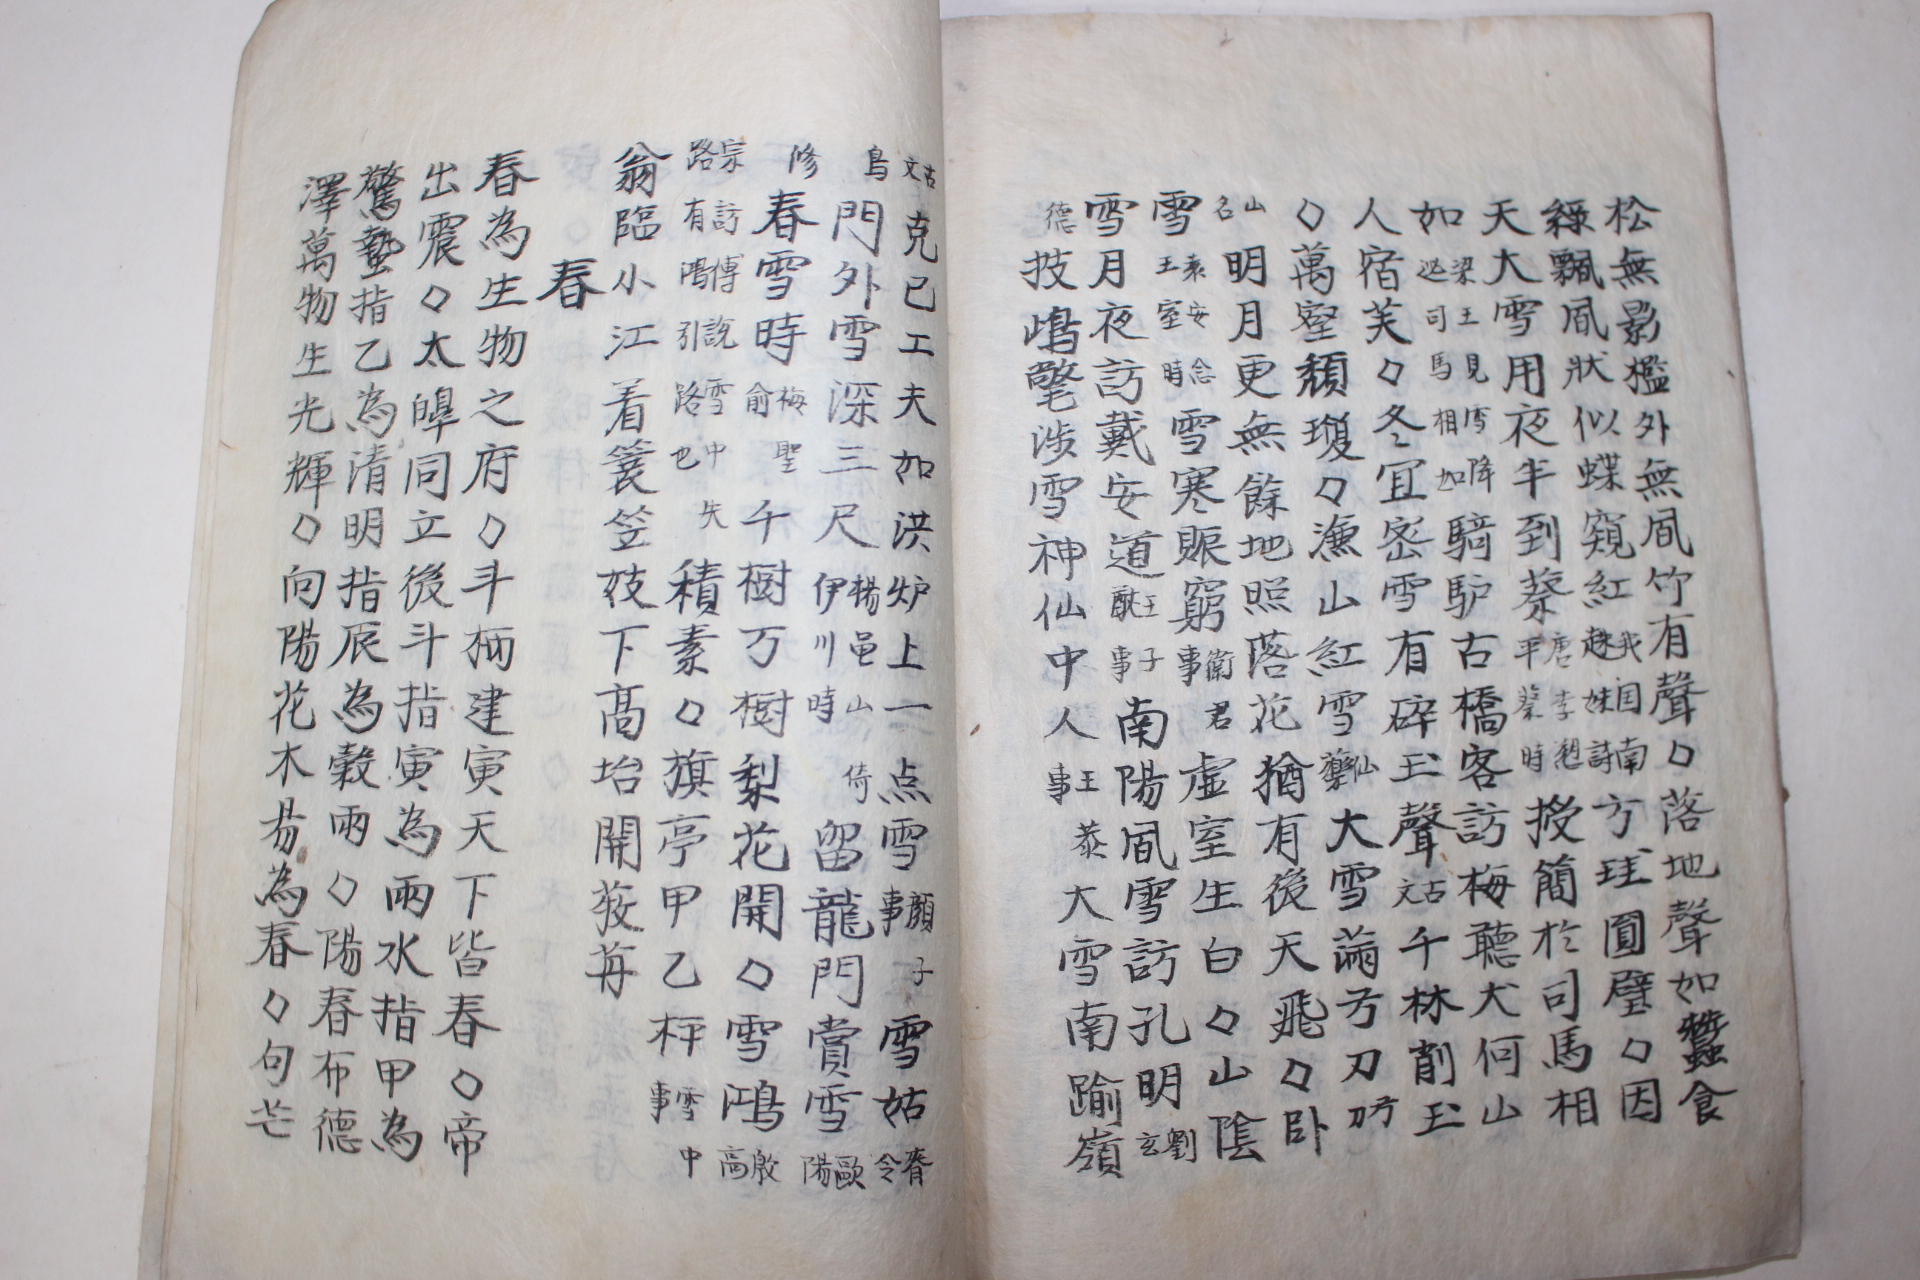 松無影檻外無風竹有聲〇落地聲如蠶食
綠飄風狀似蝶窺紅我国南越妹詩方珪圓璧〇因
天大雪用夜半到蔡唐李愬平蔡時授簡於司馬相
如梁王見雪降迟司馬相如騎驴古橋客訪梅聽犬何山
人宿芙〇冬宜密雪有碎玉聲古文千林削玉
〇萬壑頹瓊〇漁山紅雪仙藥大雪滿弓刀弓刀
山名明月更無餘地照落花猶有後天飛〇臥
雪袁安念王室時雪寒賑窮衛君事虛室生白〇山陰
雪月夜訪戴安道王子猷事南陽風雪訪孔明劉玄
德技鳩氅涉雪神仙中人王恭事大雪南踰嶺
古文克己工夫如洪炉上一点雪顏子事雪姑脊令
鳥門外雪深三尺楊邑山倚伊川時留龍門賞雪歐陽
修春雪時梅聖俞千樹万樹梨花開〇雪鴻殷高
宗訪傅說雪中失路有鴻引路也積素〇旗亭甲乙枰雪中事
翁臨小江着簑笠妓下高坮開筵苒
春
春為生物之府〇斗柄建寅天下皆春〇帝
出震〇太皡同立後斗指寅為雨水指甲為
驚蟄指乙為清明指辰為穀雨〇陽春布德
澤萬物生光輝〇向陽花木易為春〇句芒